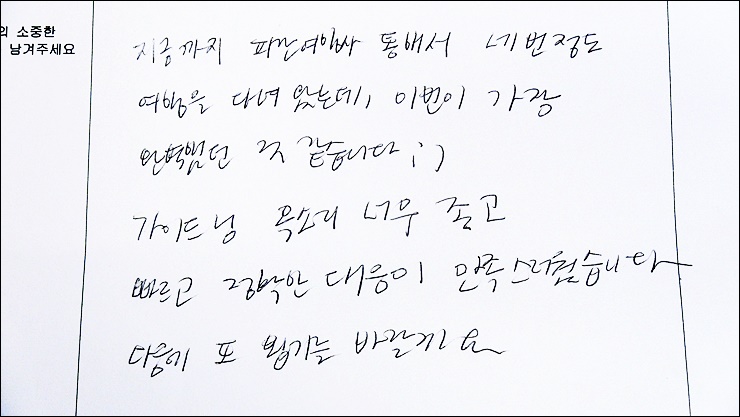 의 소중한
남겨주세요
지금까지 파란여행사 통해서 네번정도
여행을 다녀 왔는데, 이번이 가장
완벽했던 것 같습니다 ; )
가이드님 목소리 너무 좋고
빠르고 정확한 대응이 만족스러웠습니다
다음에 또 뵙기를 바랄게요